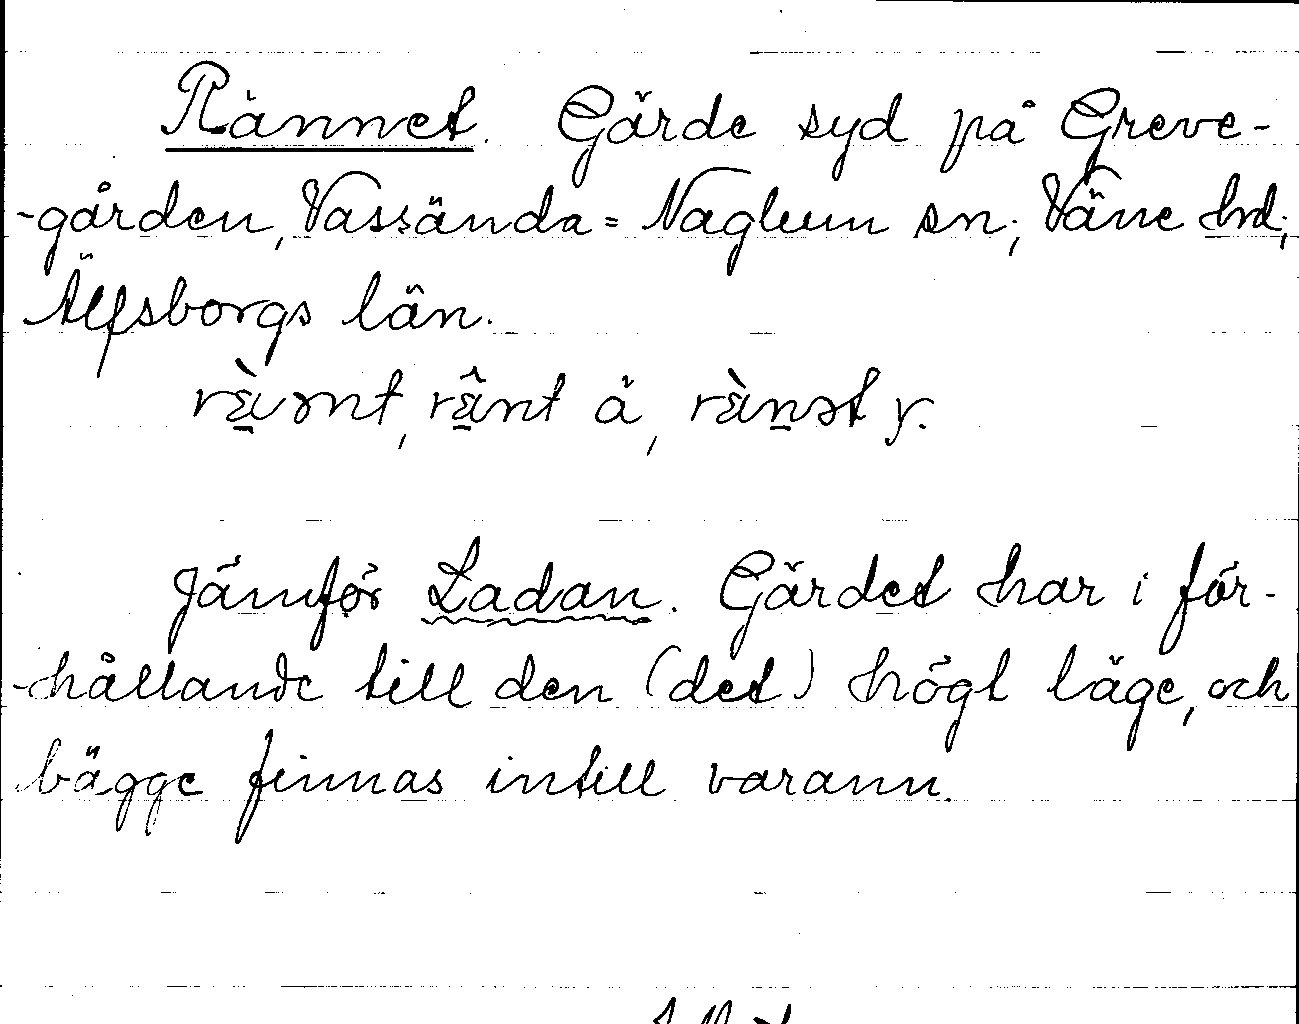 Rännet. Gärde syd på Greve-
-gården, Vassända=Naglum sn; Väne hd;
Älfsborgs län.
Jämför Ladan. Gärdet har i för-
-hållande till den (det) högt läge, och
bägge finnas intill varann.